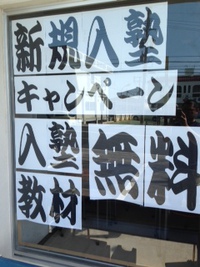 新規入塾
キャンペーン
入塾
教材
無料